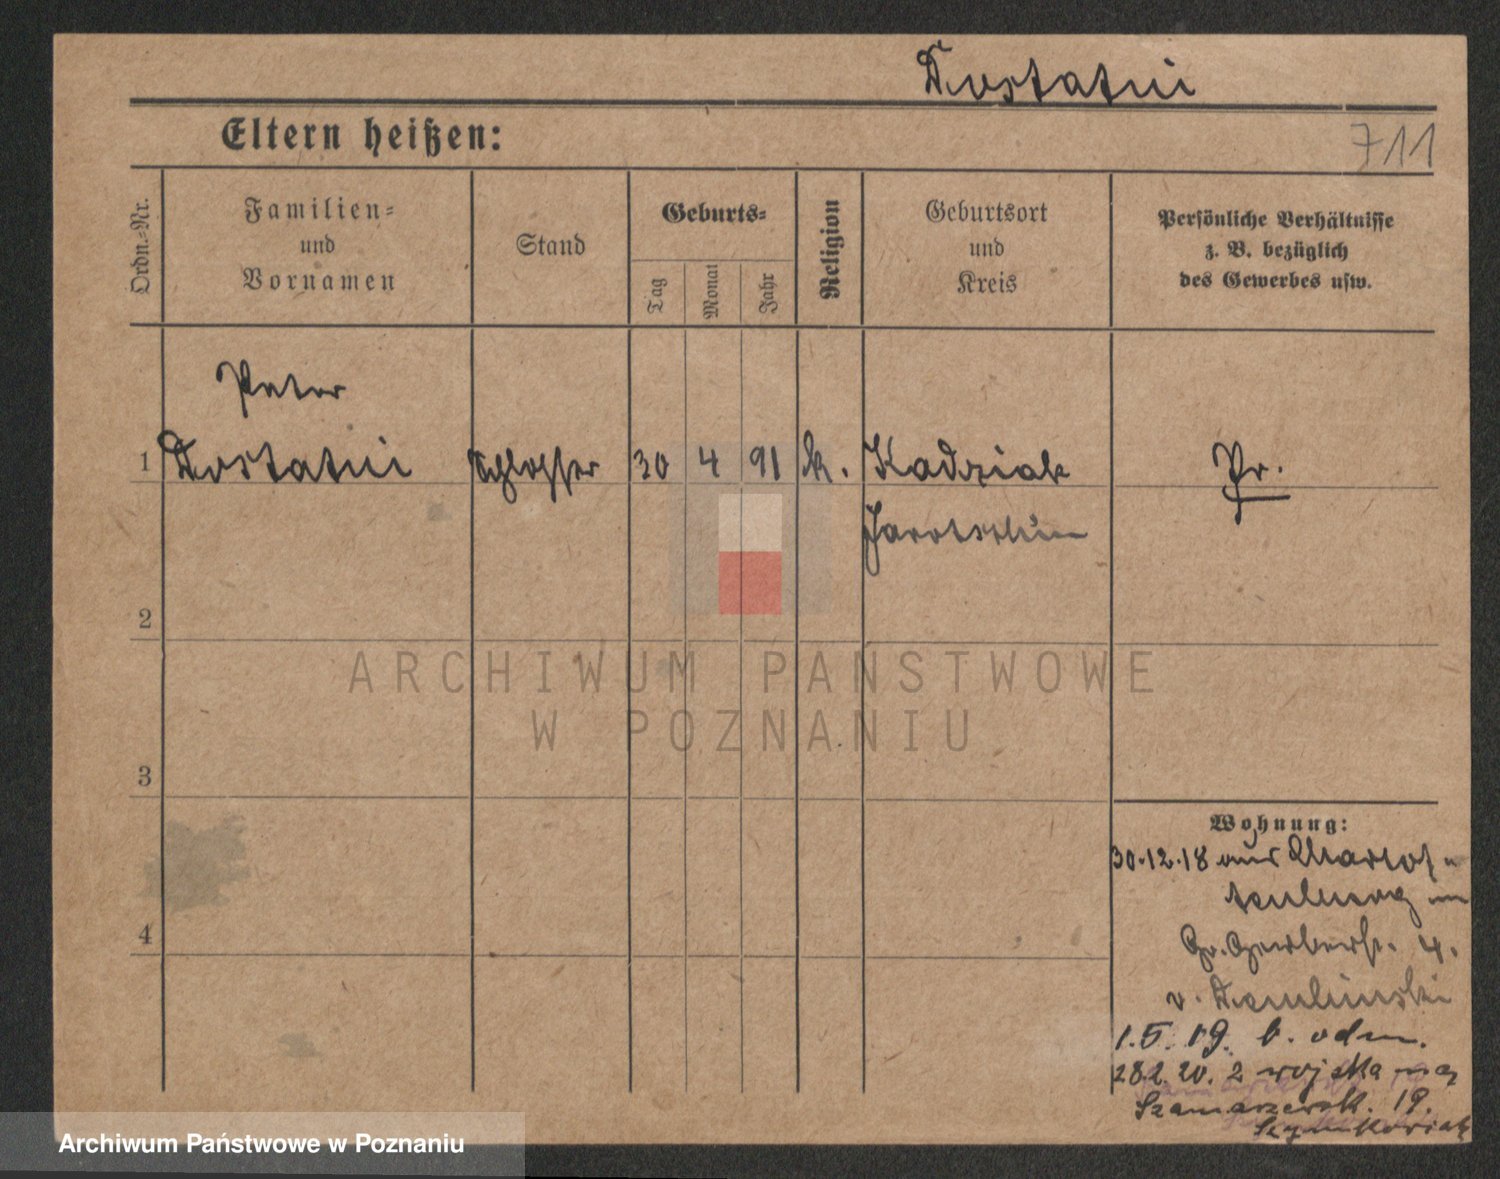 Dostatni
Eltern heißen:
711
Ordn.-Nr.
Familien-
und
Vornamen
Stand
Geburts-
Tag
Monat
Jahr
Religion
Geburtsort
und
Kreis
Persönliche Verhältnisse
z. B. bezüglich
des Gewerbes usw.
Peter
1 Dostatni Schlosser 30 4 91 k. Kadziak Pr.
Jarotschin
2
ARCHIWUM PAŃSTWOWE
W POZNANIU
3
Wohnung:
30.12.18 aus Charlot-
tenburg in
4
Gr. Gerberstr. 4.
v. Dembinski
1.5.19. b. odm.
28.2.20. z wojska na
Szamarzewsk. 19.
Szymkowiak
Archiwum Państwowe w Poznaniu